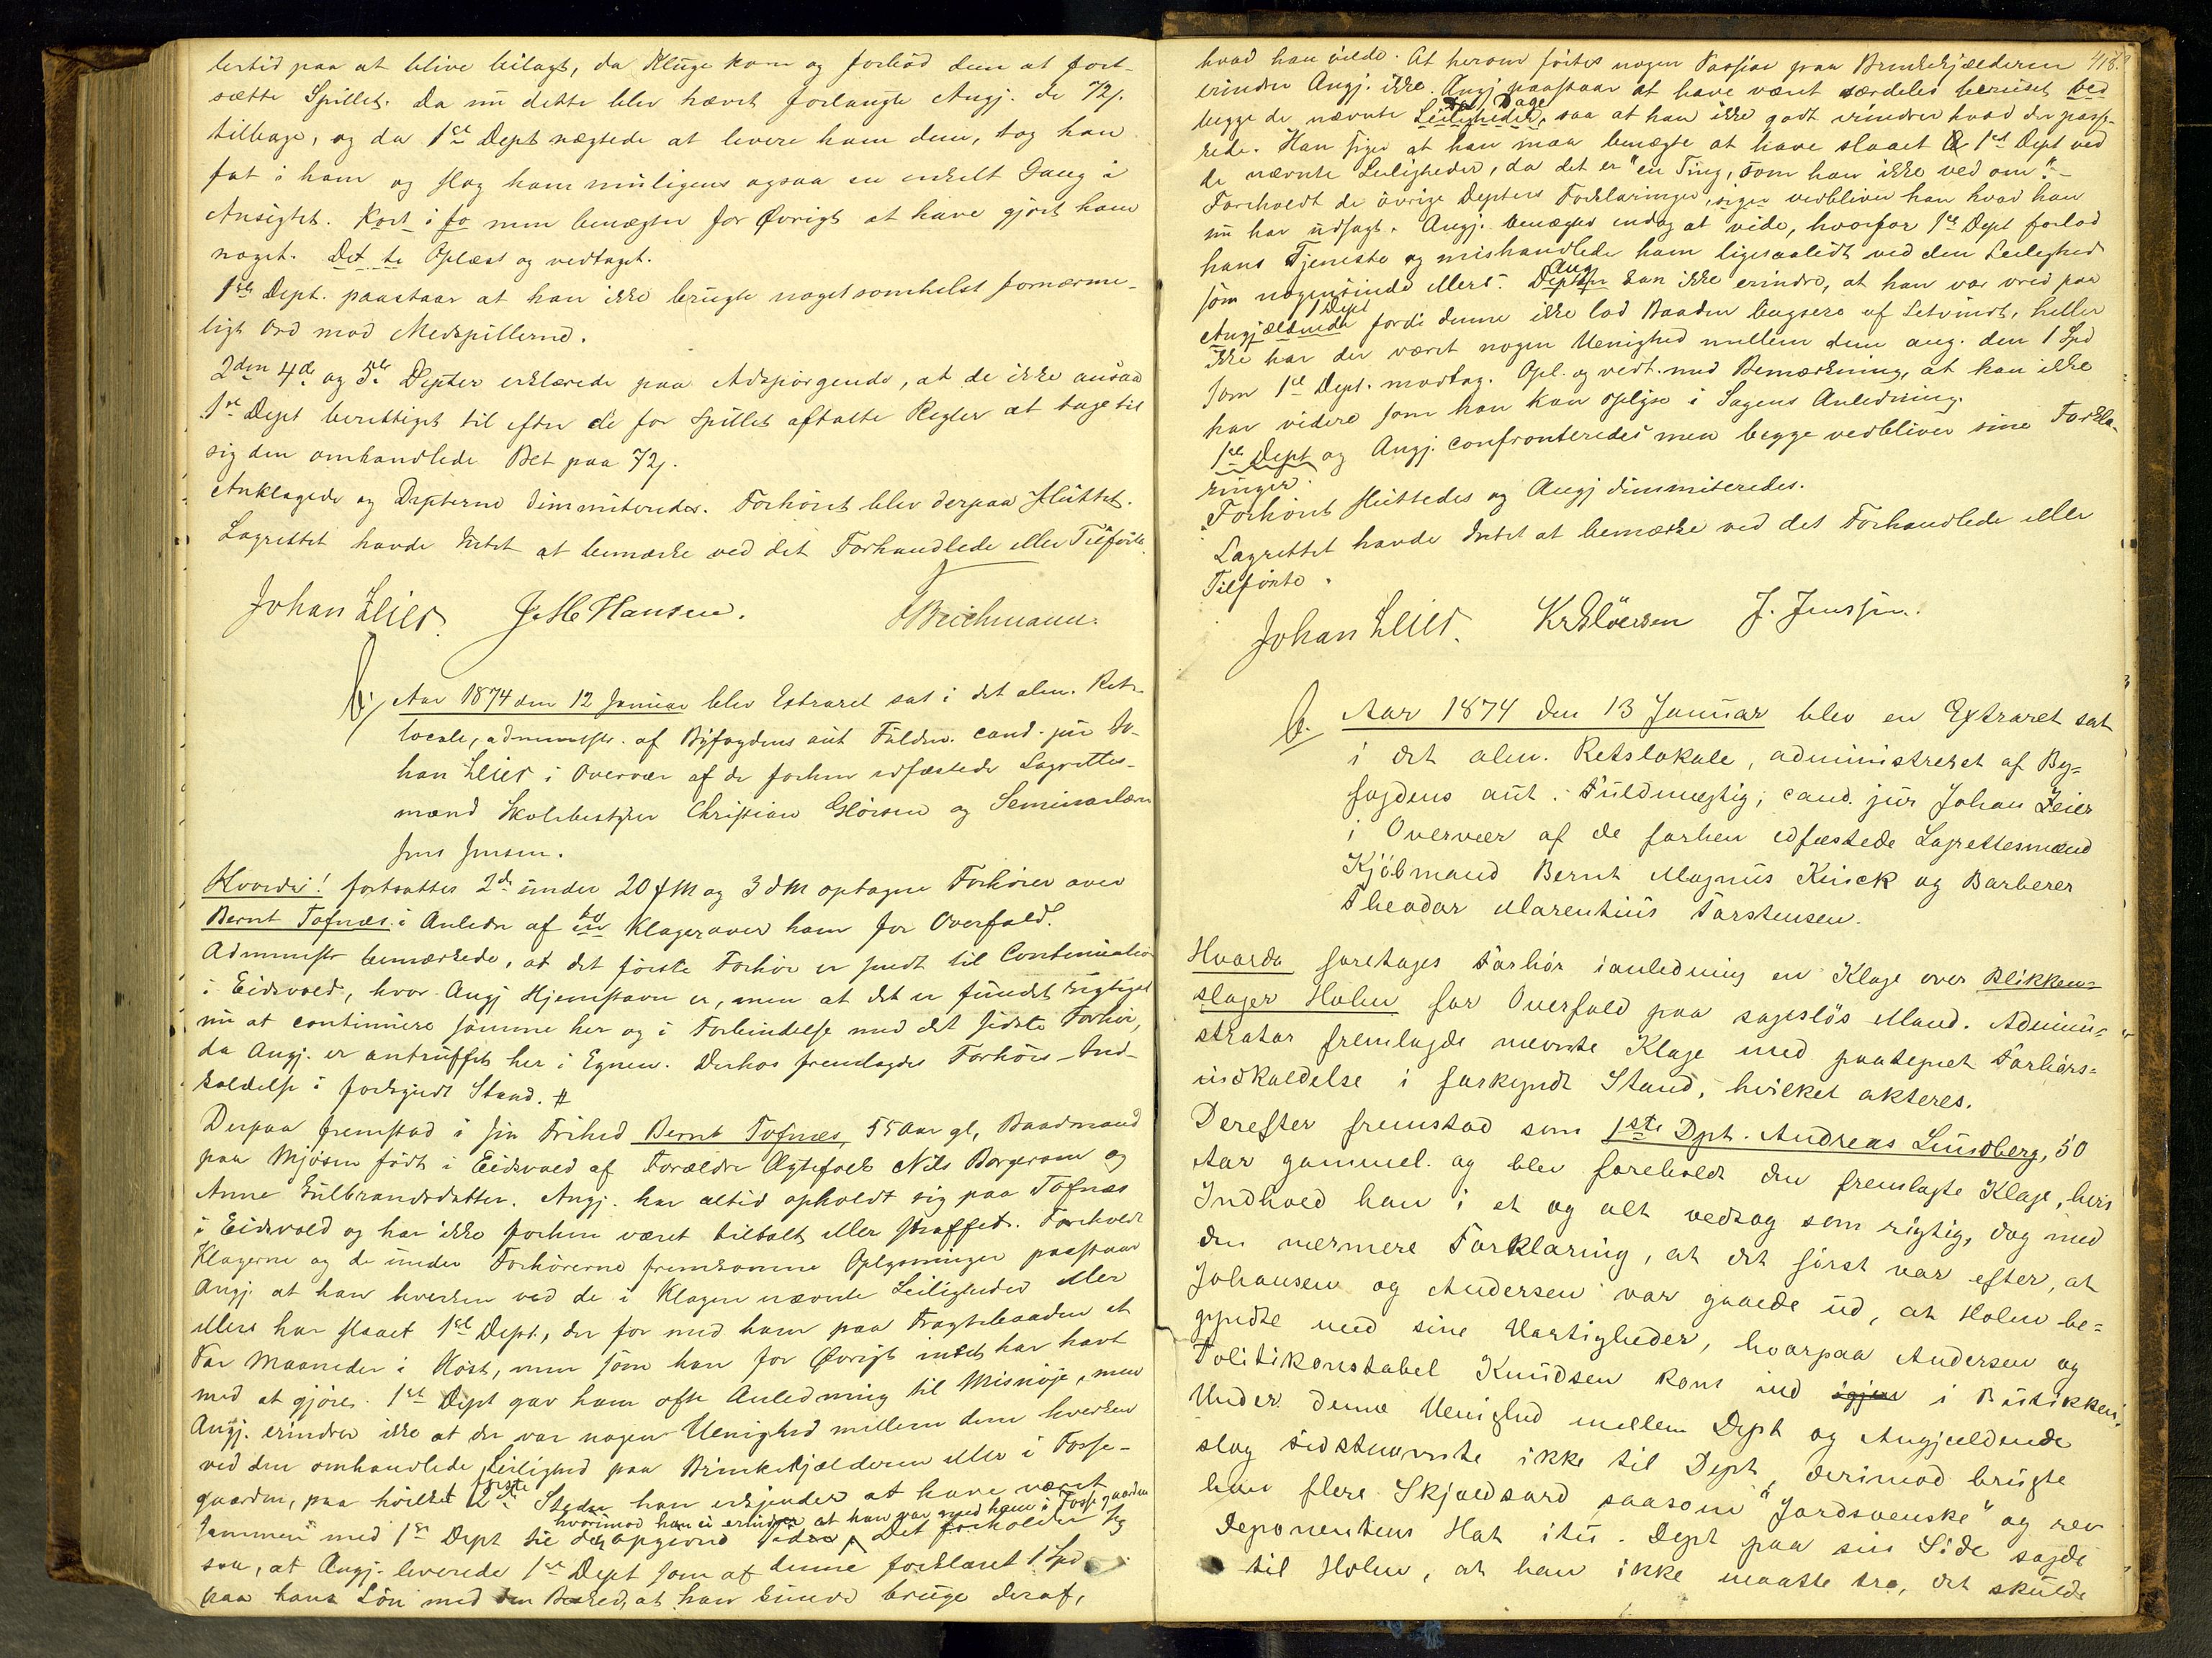 lertid paa at blive bilagt, da Kluge kom og forbød dem at fort-
sætte Spillet. Da nu dette blev hævet forlangte Angj. de 72ʃ.
tilbage, og da 1ste Dept nægtede at levere ham dem, tog han
fat i ham og slog ham muligens ogsaa en enkelt Gang i
Ansigtet. men benægter for Øvrigt at have gjort ham
noget. Oplæst og vedtaget.
1ste Dept. paastaar at han ikke brugte nogetsomhelst fornærme-
ligt Ord mod Medspillerne.
2den 4de og 5te Depter erklærede paa Adspørgende, at de ikke ansaa
1ste Dept berettiget til efter de for Spillet aftalte Regler at tage til
sig den omhandlede Bet paa 72ʃ.
Anklagede og Depterne dimmiteredes. Forhøret blev derpaa sluttet.
Lagrettet havde Intet at bemærke ved det Forhandlede eller Tilførte.
Johan Zeier. J. M. Hansen. Beichmann.
Aar 1874 den 12 Januar blev Extraret sat i det alm. Rets-
locale, administr. af Byfogdens aut Fuldm. cand. jur Jo-
han Zeier i Overvær af de forhen edfæstede Lagrettes-
mænd Skolebestyrer Christian Gløersen og Seminarlærer
Jens Jensen.
Hvorda! fortsattes 2de under 20 f M og 3 d M optagne Forhører over
Bernt Tofnæs i Anledn af to Klager over ham for Overfald.
Administr bemærkede, at det første Forhør er sendt til Continuation
i Eidsvold, hvor Angj Hjemstavn er, men at det er fundet rigtigst
nu at continuere samme her og i Forbindelse med det sidste Forhør,
da Angj. er antruffet her i Egnen. Derhos fremlagdes Forhørs-Ind-
kaldelse i forkyndt Stand. #
Derpaa fremstod i sin Frihed Bernt Tofnæs, 55 Aar gl, Baadmand
paa Mjøsen født i Eidsvold af Forældre Ægtefolk Nils Borgersen og
Anne Gulbrandsdatter. Angj. har altid opholdt sig paa Tofnæs
i Eidsvold og har ikke forhen været tiltalt eller straffet. Foreholdt
Klagerne og de under Forhørerne fremkomne Oplysninger paastaar
Angj. at han hverken ved de i Klagen nævnte Leiligheder eller
ellers har slaaet 1ste Dept, der for med ham paa Fragtebaaden et
Par Maaneder i Høst, men som han for Øvrigt intet har havt
med at gjøre. 1ste Dept gav ham ofte Anledning til Misnøje, men
Angj. erindrer ikke at der var nogen Uenighed mellem dem hverken
ved den omhandlede Leilighed paa Brinkekjælderen eller i Fosse-
første
gaarden, paa hvilket Sted han erkjender at have været
hvorimod han ei erindrer at han var med ham i Fossegaarden
sammen med 1ste Dept til den opgivne Tiden. Det forholder sig
saa, at Angj. leverede 1ste Dept som af denne forklaret 1 Spd
paa hans Løn med den Besked, at han kunde bruge deraf,
418.
hvad han vilde. At herom førtes nogen Passiar paa Brinkekjælderen
erindrer Angj. ikke. Angj paastaar at have været særdeles beruset ved
Dage
begge de nævnte Leiligheder, saa at han ikke godt erindrer hvad der pass-
erede. Han siger at han maa benægte at have slaaet 1ste Dept ved
de nævnte Leiligheder, da det er "en Ting, som han ikke ved om".-
Foreholdt de øvrige Depters Forklaringer, siger vedbliver han hvad han
nu har udsagt. Angj. benægter endog at vide, hvorfor 1ste Dept forlod
hans Tjeneste og mishandlede ham ligesaalidt ved den Leilighed
Ang
som nogensinde ellers. Depten kan ikke erindre, at han var vred paa
1 Dept
Angjældende fordi denne ikke lod Baaden bugsere af Letvindt, heller
ikke har der været nogen Uenighed mellem dem ang. den 1 Spd
som 1ste Dept. modtog. Opl. og vedt. med Bemærkning, at han ikke
har videre som han kan oplyse i Sagens Anledning.
1ste Dept og Angj. confronteredes men begge vedbliver sine Forkla-
ringer.
Forhøret sluttedes og Angj dimmiteredes.
Lagrettet havde Intet at bemærke ved det Forhandlede eller
Tilførte.
Johan Zeier. Kr Gløersen J. Jenssen.
Aar 1874 den 13 Januar blev en Extraret sat
i det alm. Retslokale, administreret af By=
fogdens aut. Fuldmægtig, cand. jur Johan Zeier
i Overvær af de forhen edfæstede Lagrettesmænd
Kjøbmand Bernt Magnus Kinck og Barberer
Theodor Marentius Torstensen.
Hvorda foretages Forhør i anledning en Klage over Blikken=
slager Holm for Overfald paa sagesløs Mand. Admini=
strator fremlagde nævnte Klage med paategnet Forhørs=
indkaldelse i forkyndt Stand, hvilket akteres.
Derefter fremstod som 1ste Dpt. Andreas Lundberg, 50
Aar gammel. og blev foreholdt den fremlagte Klage, hvis
Indhold han i et og alt vedtog som rigtig, dog med
den nærmere Forklaring, at det først var efter, at
Johansen og Andersen var gaaede ud, at Holm be=
gyndte med sine Hastigheder, hvorpaa Andersen og
Politikonstabel Knudsen kom ind igjen i Butikken.
Under denne Uenighed mellem Dept og Angjældende
slog sidstnævnte ikke til Dept, derimod brugte
han flere Skjældsord saasom "Jordsvenske" og rev
Deponentens Hat itu. Dept paa sin Side sagde
til Holm, at han ikke maatte tro, det skulde